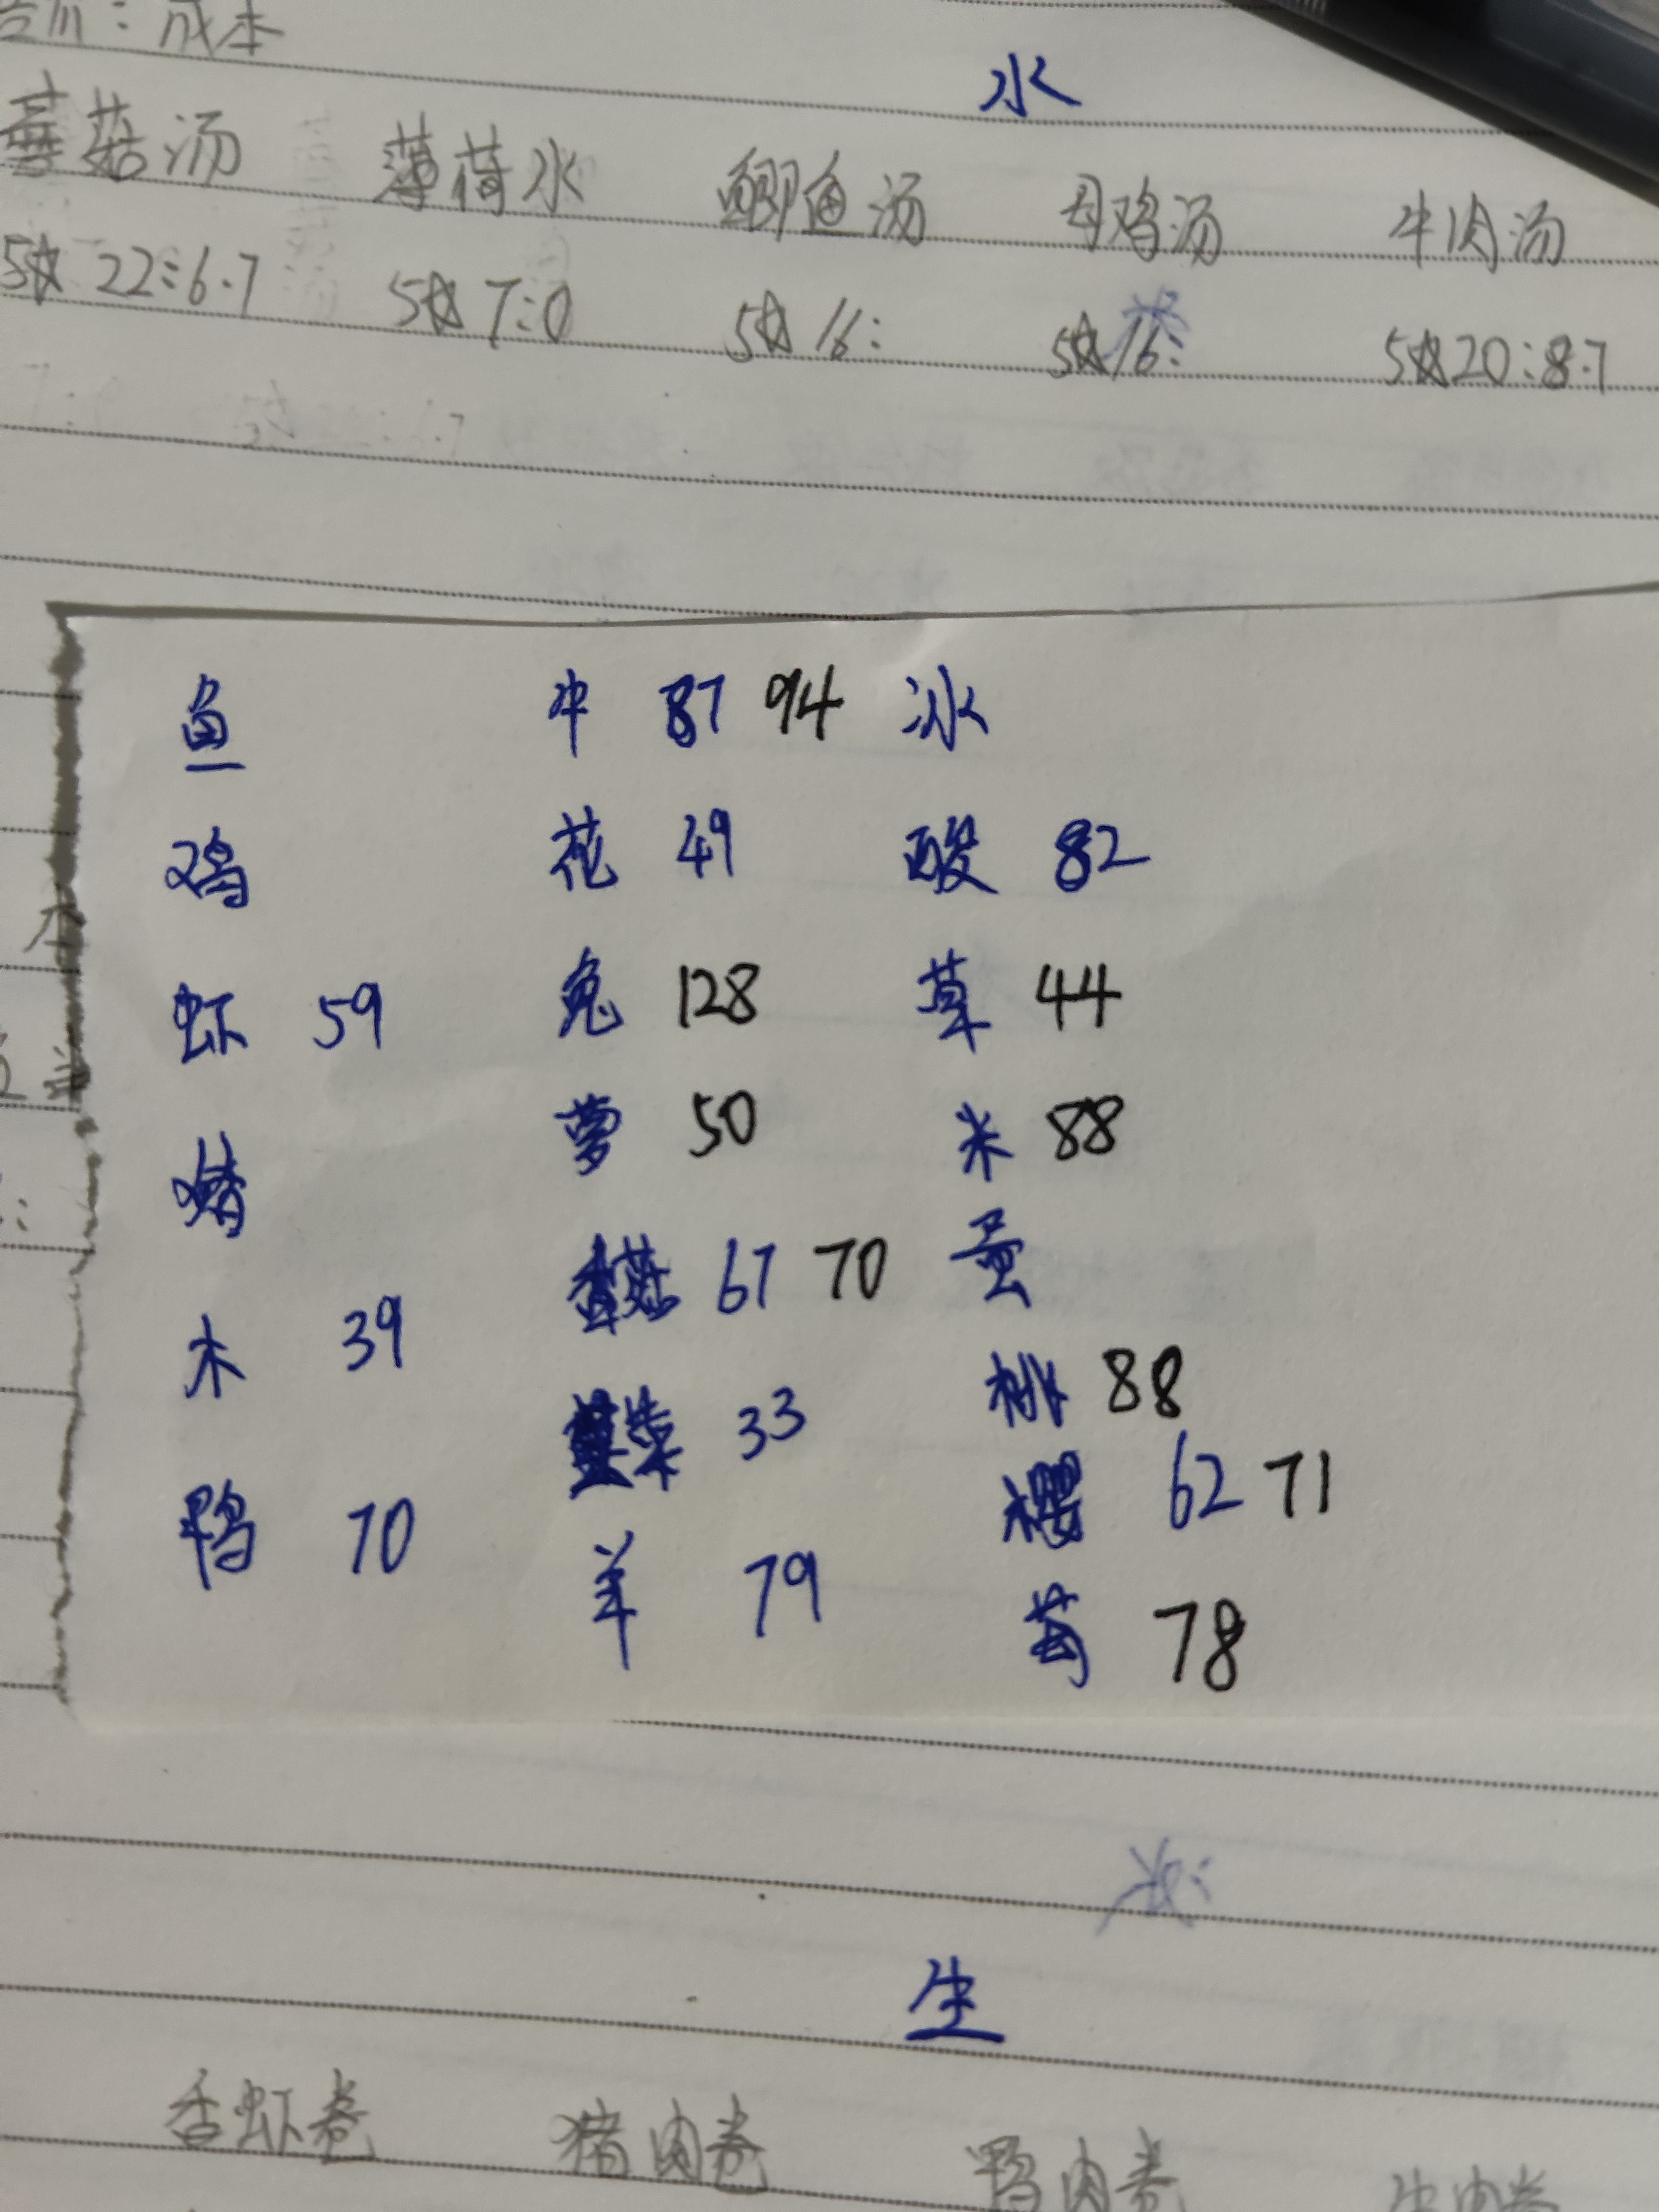 ：成本
水
蘑菇汤 薄荷水 鲫鱼汤 母鸡汤 牛肉汤
5☆ 22:6.7 5☆ 7:0 5☆ 16: 5☆ 16: 5☆ 20:8.7
鱼 牛 87 94 冰
鸡 花 49 酸 82
虾 59 兔 128 草 44
猪 萝 50 米 88
香菇 67 70 蛋
木 39 桃 88
菜 33 樱 62 71
鸭 70 羊 79 莓 78
生
香虾卷 猪肉卷 鸭肉卷 牛肉卷